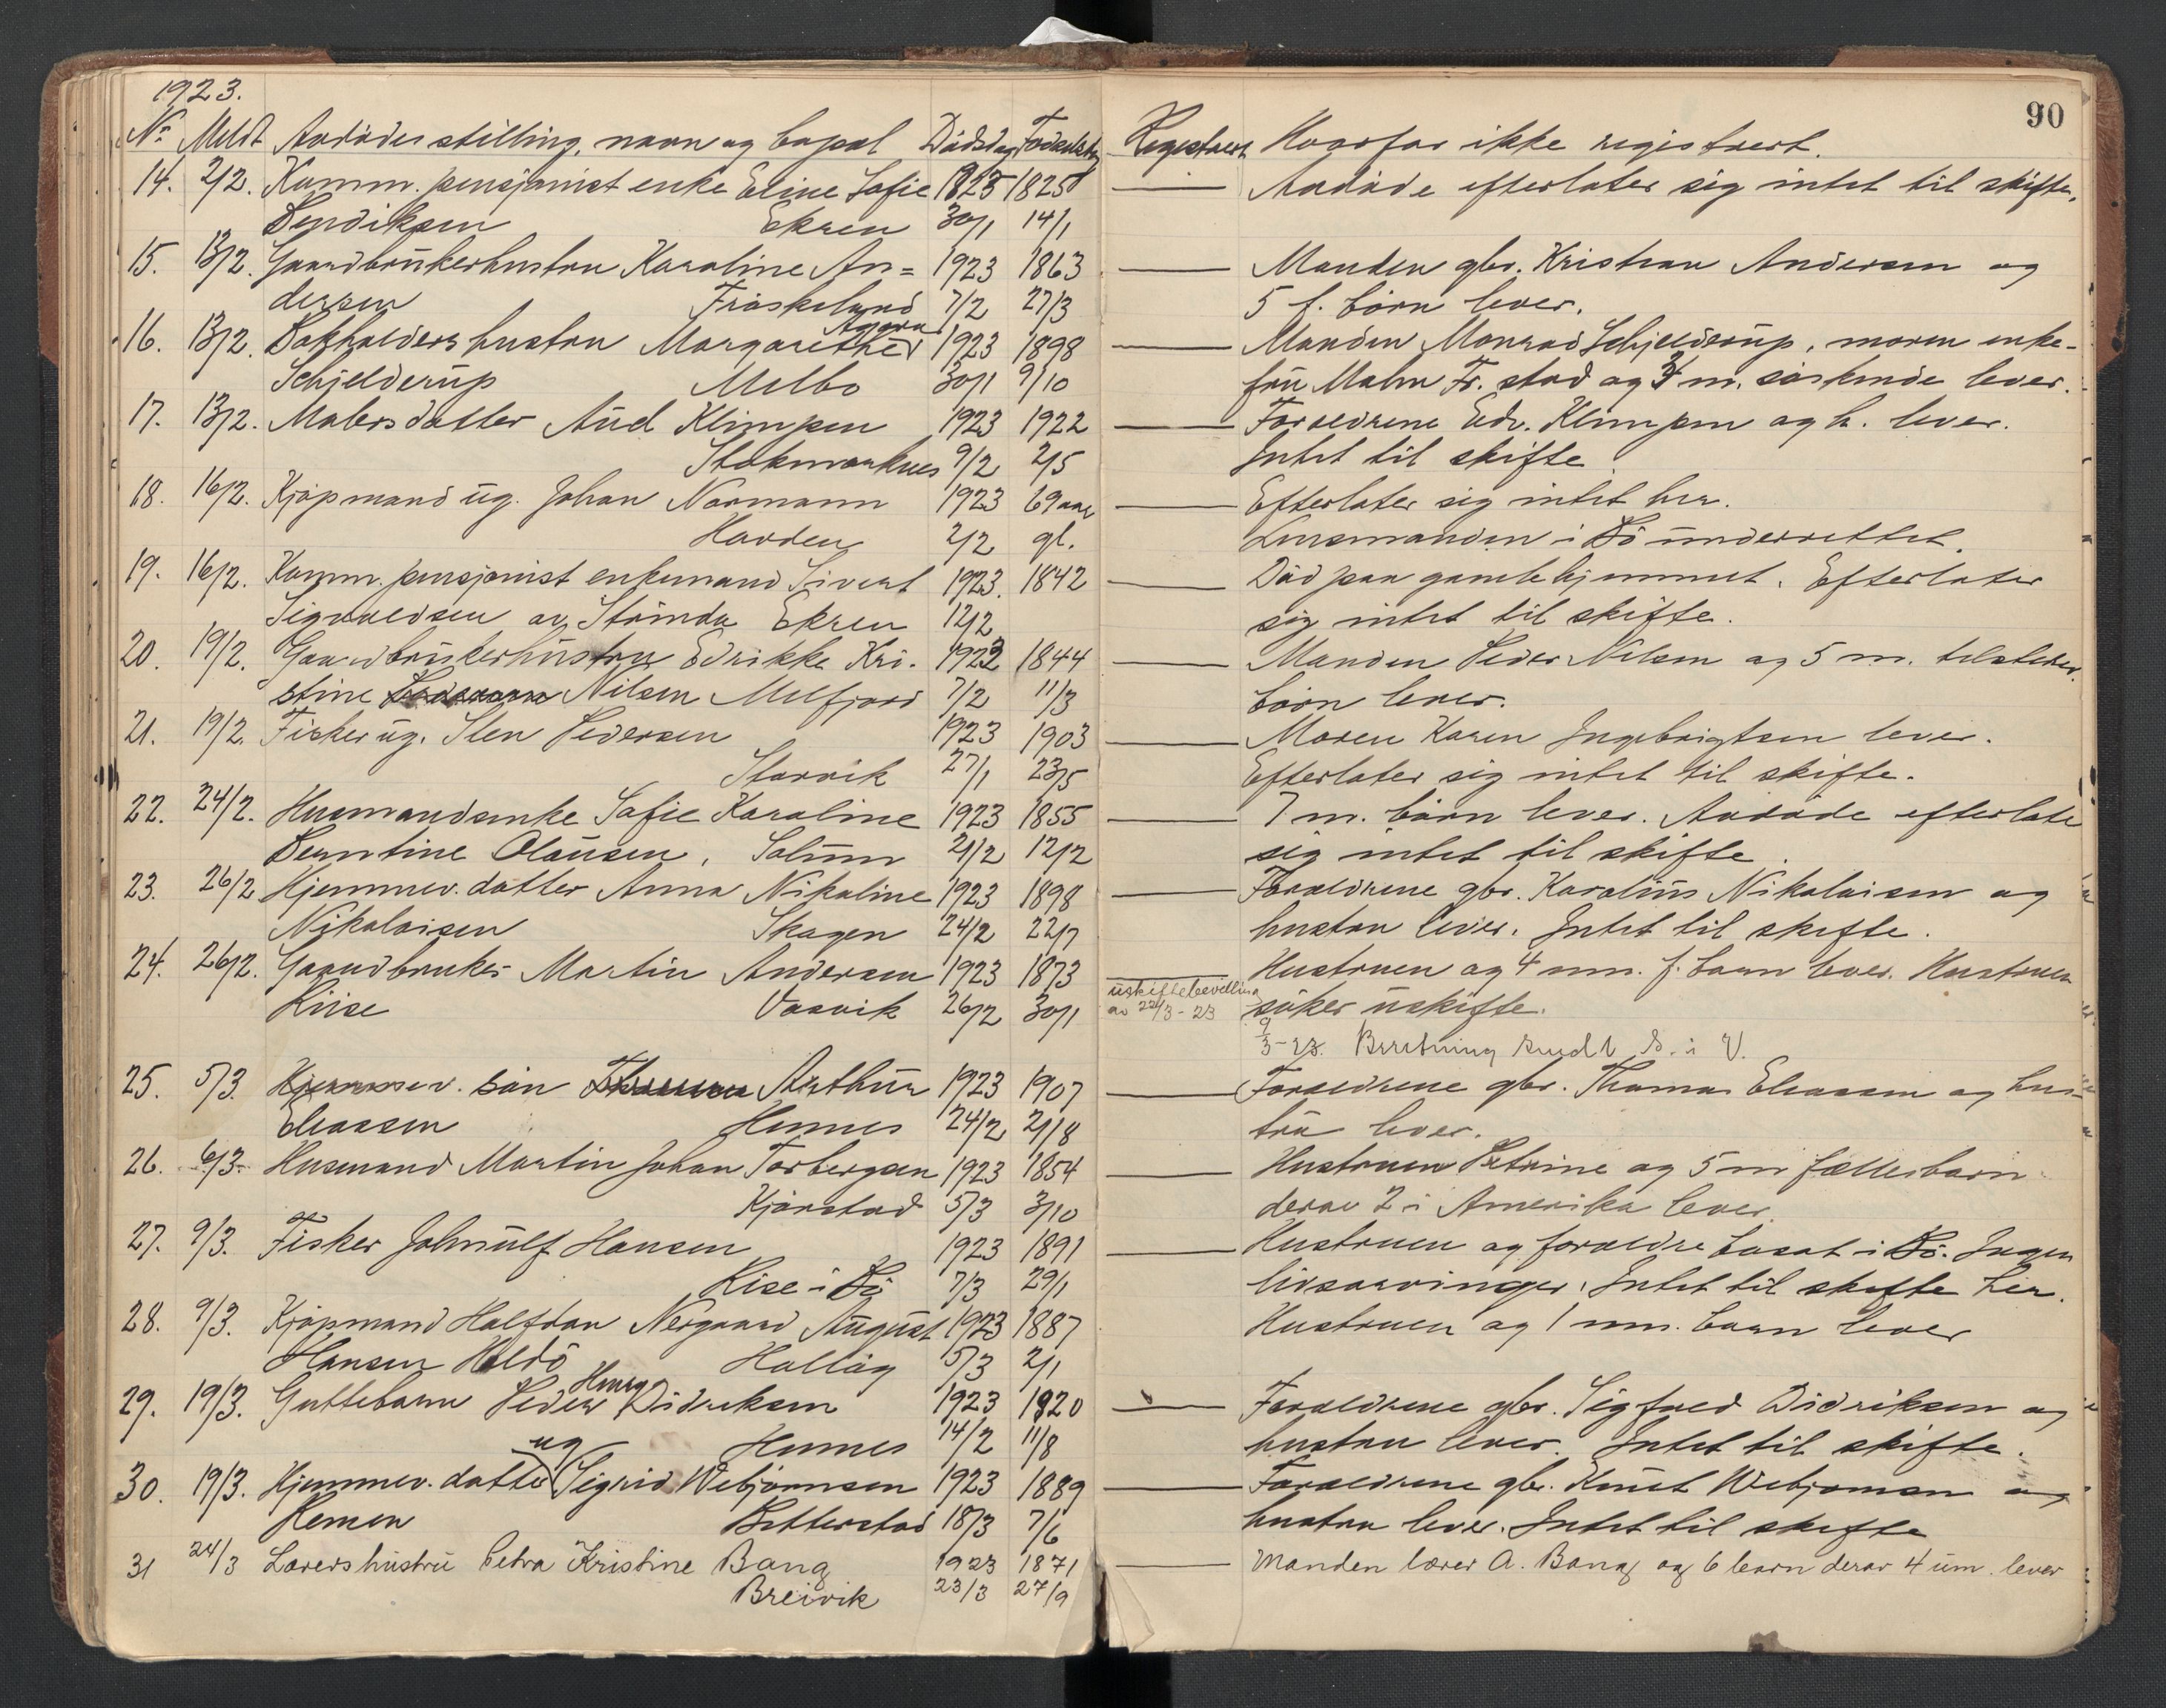 90
1923.
No Meldt Avdødes stilling, navn og bopæl Dødsdag Fødselsdag Registrert Hvorfor ikke registrert.
14. 2/2. Komm. pensjonist enke Eline Sofie 1923 1825 Avdøde efterlater sig intet til skifte.
Bendiksen Ekren 30/1 14/1
15. 13/2. Gaardbrukerhustru Karoline An= 1923 1863 Manden gbr. Kristian Andersen og
dersen Frøskeland 7/2 27/3 5 f. børn lever.
16. 13/2. Bokholdershustru Margarethe 1923 1898 Manden Monrad Schjelderup, moren enke-
Schjelderup Melbo 30/1 9/10 fru Malm Fr. stad og m. søskende lever.
17. 13/2. Malersdatter Aud Klimpen 1923 1922 Forældrene Edv. Klimpen og h. lever.
Stokmarknes 9/2 2/5 Intet til skifte.
18. 16/2. Kjøpmand ug. Johan Normann 1923 69 aar Efterlater sig intet her.
Havden 2/2 gl. Lensmanden i Bø underrettet.
19. 16/2. Komm. pensjonist enkemand Sivert 1923. 1842 Død paa gamlehjemmet. Efterlater
Sigvaldsen av Ekren 12/2 sig intet til skifte.
20. 19/2. Gaardbrukerhustru Edrikke Kri- 1923 1844 Manden Peder Nilsen og 5 m.
stine Nilsen Melfjord 7/2 11/3 børn lever.
21. 19/2. Fisker ug. Sten Pedersen 1923 1903 Moren Karen Ingebrigtsen lever.
Storvik 27/1 23/5 Efterlater sig intet til skifte.
22. 24/2. Husmandsenke Sofie Karoline 1923 1855 7 m. børn lever. Avdøde efterlate
Berntine Olausen, Solum 21/2 12/2 sig intet til skifte.
23. 26/2 Hjemmev. datter Anna Nikoline 1923 1898 Forældrene gbr. Karolius Nikolaisen og
Nikolaisen Skagen 24/2 22/7 hustru lever. Intet til skifte.
24. 26/2. Gaardbruker Martin Andersen 1923 1873 Hustruen og 4 um. f. barn lever. Hustruen
Kiise Vasvik 26/2 30/1 uskiftebevilling av 22/3-23 søker uskifte.
9/3-23. Beretning sendt S. i V.
25. 5/3. Hjemmev. søn Arthur 1923 1907 Forældrene gbr. Thomas Eliassen og hus-
Eliassen Hennes 24/2 21/8 tru lever.
26. 6/3. Husmand Martin Johan Torbergsen 1923 1854 Hustruen Petrine og 5 m fællesbarn
Kjørstad 5/3 3/10 derav 2 i Amerika lever.
27. 9/3. Fisker Johnulf Hansen 1923 1891 Hustruen og forældre bosat i Bø. Ingen
Rise i Bø 7/3 29/1 livsarvinger. Intet til skifte her.
28. 9/3. Kjøpmand Halfdan Nergaard August 1923 1887 Hustruen og 1 um. barn lever
Hansen Holdø Holløy 5/3 2/1
29. 19/3. Guttebarn Peder Henry Didriksen 1923 1920 Forældrene gbr. Sigfred Didriksen og
Hennes 14/2 11/8 hustru lever. Intet til skifte.
30. 19/3. Hjemmev. datter ug Sigrid Webjørnsen 1923 1889 Forældrene gbr. Knut Webjørnsen og
Hemen Bitterstad 18/3 7/6 hustru lever. Intet til skifte
31 24/3 Lærershustru Petra Kristine Bang 1923 1871 Manden lærer A. Bang og 6 barn derav 4 um. lever
Breivik 23/3 27/9